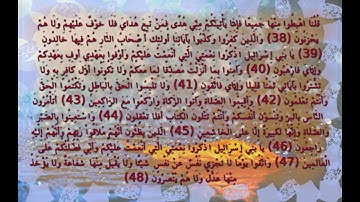 قُلْنَا اهْبِطُوا مِنْهَا جَمِيعًا فَإِمَّا يَأْتِيَنَّكُمْ مِنِّي هُدًى فَمَنْ تَبِعَ هُدَايَ فَلَا خَوْفٌ عَلَيْهِمْ وَلَا هُمْ
يَحْزَنُونَ (38) وَالَّذِينَ كَفَرُوا وَكَذَّبُوا بِآيَاتِنَا أُولَئِكَ أَصْحَابُ النَّارِ هُمْ فِيهَا خَالِدُونَ
(39) يَا بَنِي إِسْرَائِيلَ اذْكُرُوا نِعْمَتِيَ الَّتِي أَنْعَمْتُ عَلَيْكُمْ وَأَوْفُوا بِعَهْدِي أُوفِ بِعَهْدِكُمْ
وَإِيَّايَ فَارْهَبُونِ (40) وَآمِنُوا بِمَا أَنْزَلْتُ مُصَدِّقًا لِمَا مَعَكُمْ وَلَا تَكُونُوا أَوَّلَ كَافِرٍ بِهِ وَلَا
تَشْتَرُوا بِآيَاتِي ثَمَنًا قَلِيلًا وَإِيَّايَ فَاتَّقُونِ (41) وَلَا تَلْبِسُوا الْحَقَّ بِالْبَاطِلِ وَتَكْتُمُوا الْحَقَّ
وَأَنْتُمْ تَعْلَمُونَ (42) وَأَقِيمُوا الصَّلَاةَ وَآتُوا الزَّكَاةَ وَارْكَعُوا مَعَ الرَّاكِعِينَ (43) أَتَأْمُرُونَ
النَّاسَ بِالْبِرِّ وَتَنْسَوْنَ أَنْفُسَكُمْ وَأَنْتُمْ تَتْلُونَ الْكِتَابَ أَفَلَا تَعْقِلُونَ (44) وَاسْتَعِينُوا بِالصَّبْرِ
وَالصَّلَاةِ وَإِنَّهَا لَكَبِيرَةٌ إِلَّا عَلَى الْخَاشِعِينَ (45) الَّذِينَ يَظُنُّونَ أَنَّهُمْ مُلَاقُو رَبِّهِمْ وَأَنَّهُمْ إِلَيْهِ
رَاجِعُونَ (46) يَا بَنِي إِسْرَائِيلَ اذْكُرُوا نِعْمَتِيَ الَّتِي أَنْعَمْتُ عَلَيْكُمْ وَأَنِّي فَضَّلْتُكُمْ عَلَى
الْعَالَمِينَ (47) وَاتَّقُوا يَوْمًا لَا تَجْزِي نَفْسٌ عَنْ نَفْسٍ شَيْئًا وَلَا يُقْبَلُ مِنْهَا شَفَاعَةٌ وَلَا يُؤْخَذُ
مِنْهَا عَدْلٌ وَلَا هُمْ يُنْصَرُونَ (48)